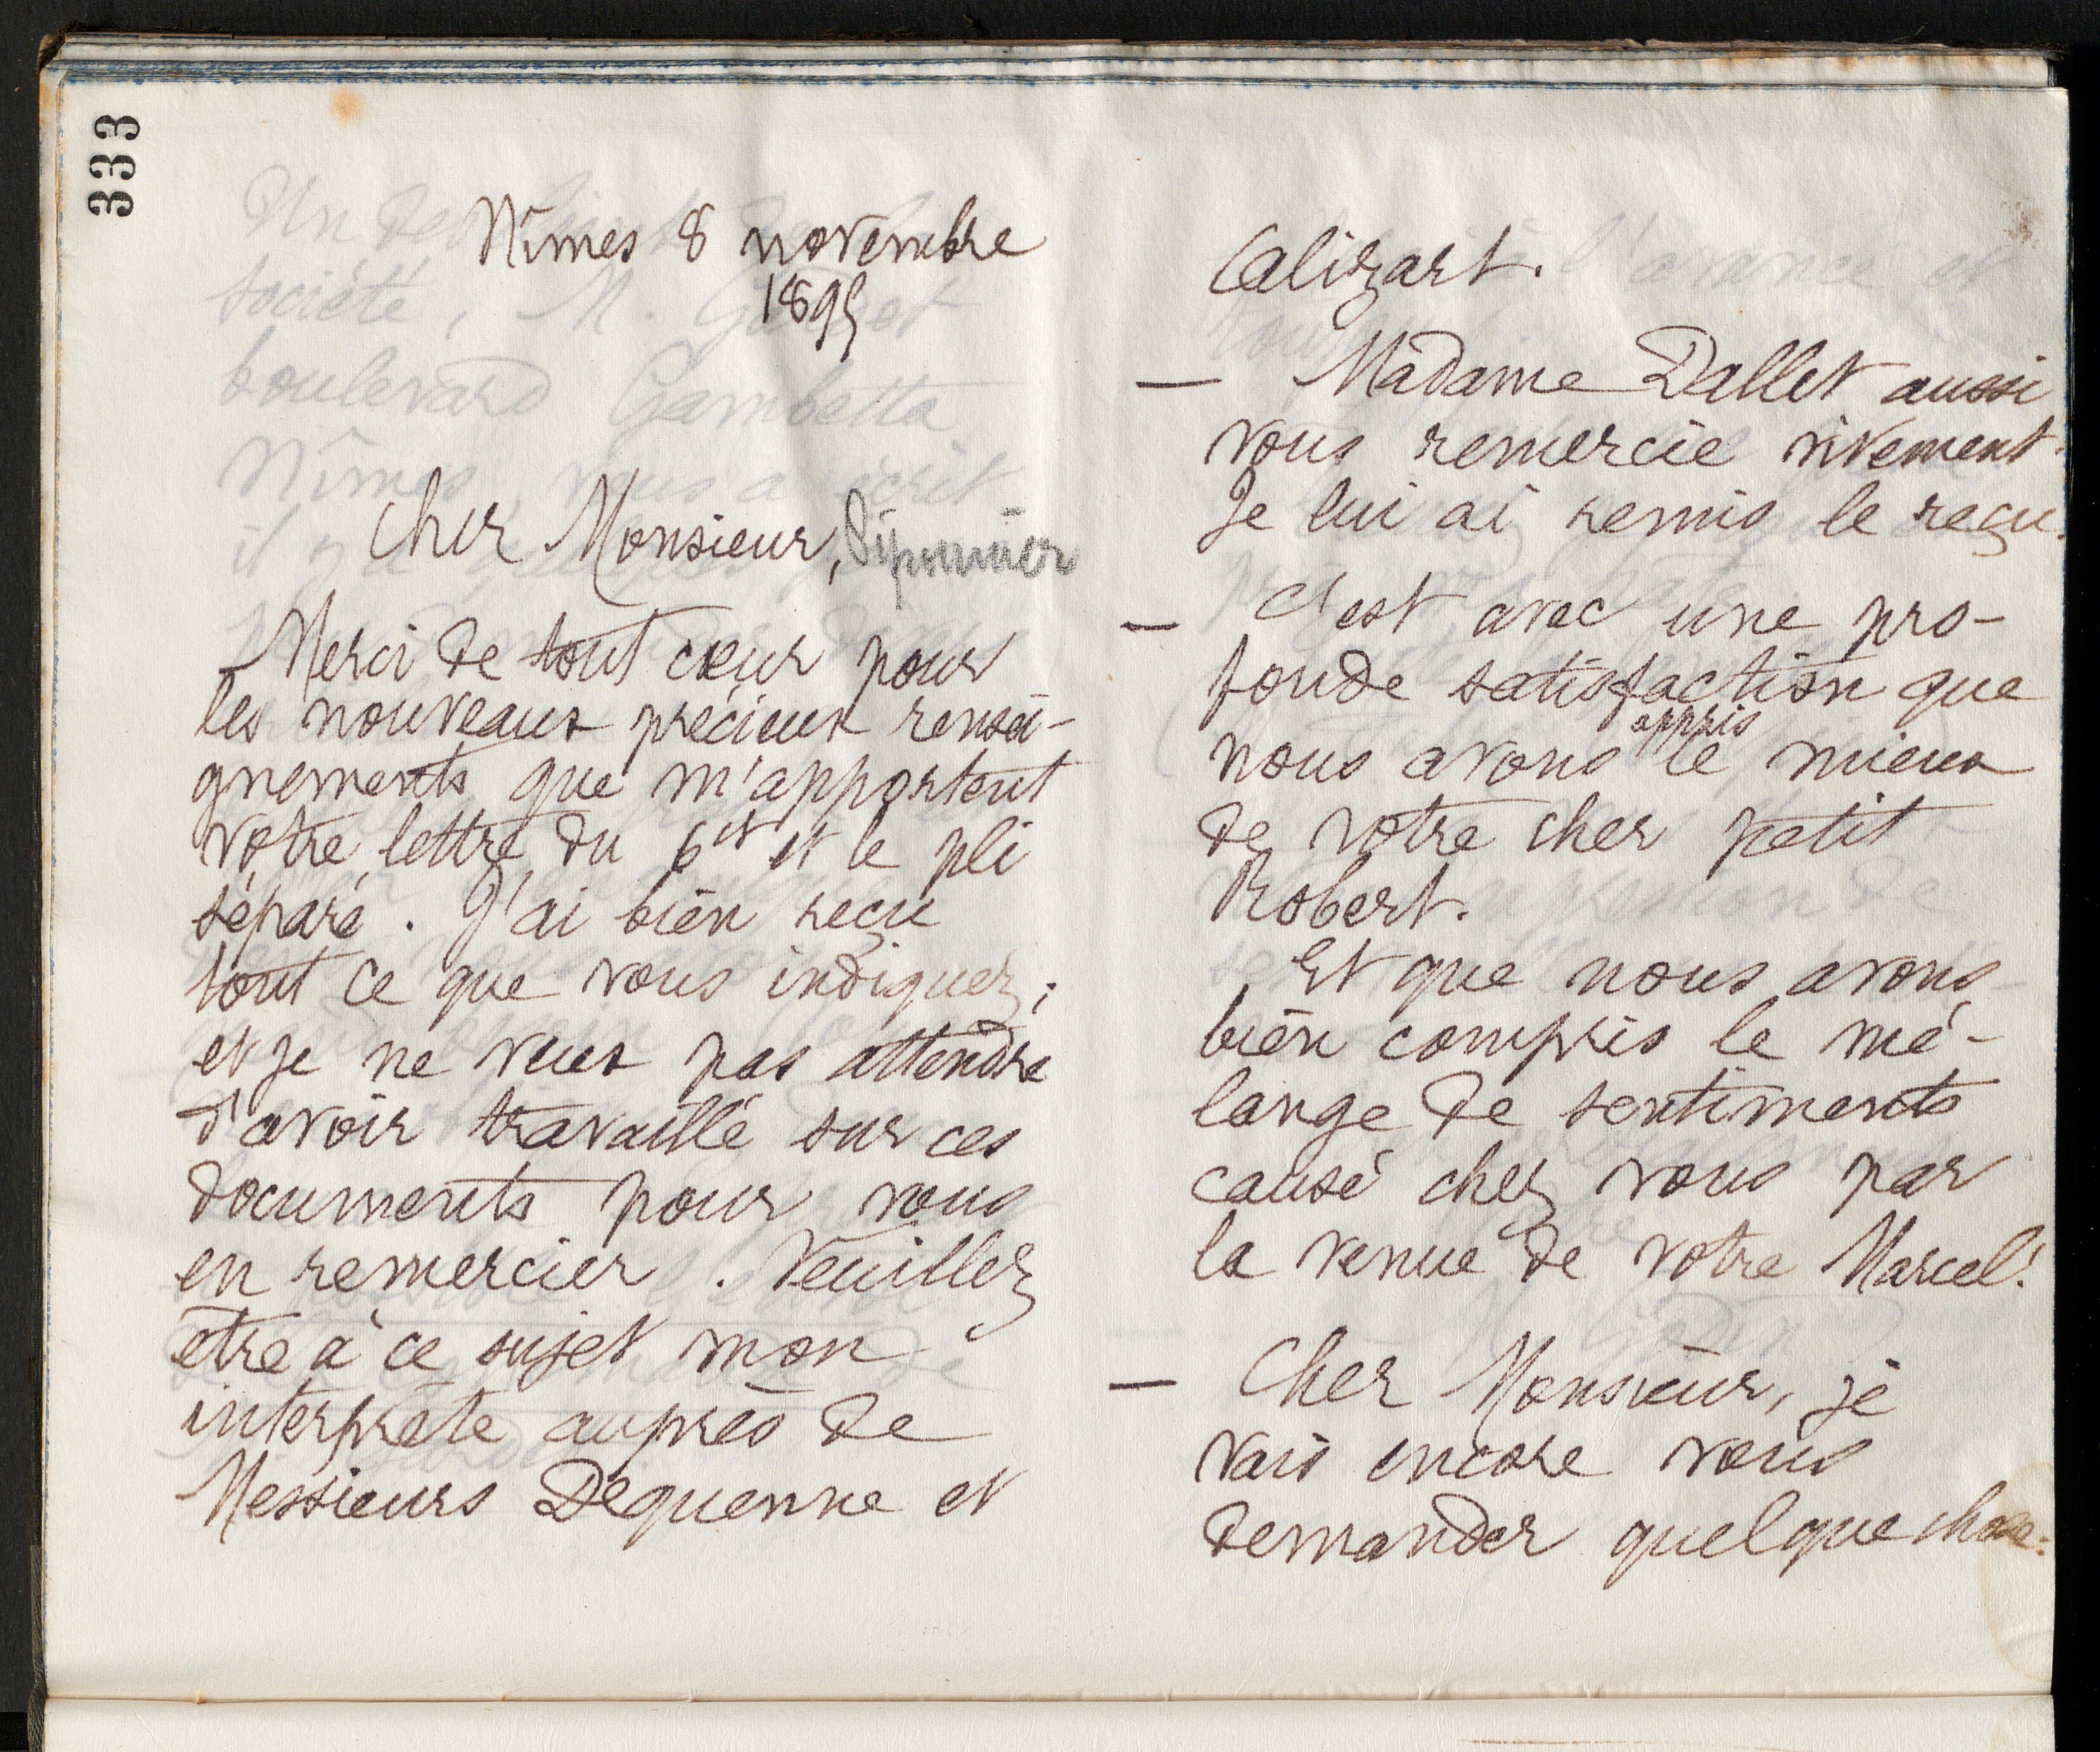 333
Nîmes 8 novembre
1895
Cher Monsieur, Siponnier
Merci de tout cœur pour
les nouveaux précieux rensei-
gnements que m'apportent
votre lettre du 6 ct et le pli
séparé. J'ai bien reçu
tout ce que vous indiquez;
et je ne veux pas attendre
d'avoir travaillé sur ces
documents pour vous
en remercier. Veuillez
être à ce sujet mon
interprète auprès de
Messieurs Dequenne et
Calizart.
— Madame Dallet aussi
vous remercie vivement.
Je lui ai remis le reçu.
— C'est avec une pro-
fonde satisfaction que
nous avons appris le mieux
de votre cher petit
Robert.
Et que nous avons
bien compris le mé-
lange de sentiments
causé chez vous par
la venue de votre Marcel!
— Cher Monsieur, je
vais encore vous
demander quelque chose: